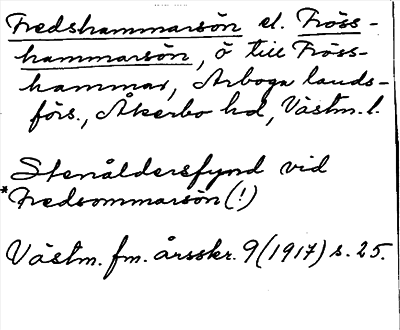 Fredshammarsön el. Fröss-
hammarsön, ö till Fröss-
hammar, Arboga lands-
förs., Åkerbo hd, Västm. l.
Stenåldersfynd vid
*Fredsommarsön (!)
Västm. fm. årsskr. 9 (1917) s. 25.